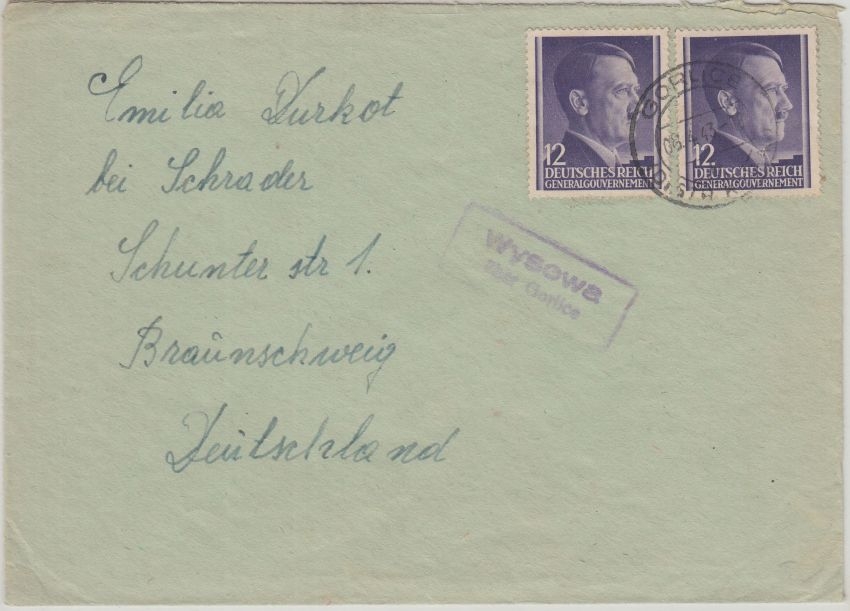 Emilia Durkot
bei Schrader
Schunter str 1.
Braunschweig
Deutschland
12
DEUTSCHES REICH
GENERALGOUVERNEMENT
12
DEUTSCHES REICH
GENERALGOUVERNEMENT
GORLICE
Wysowa
über Gorlice